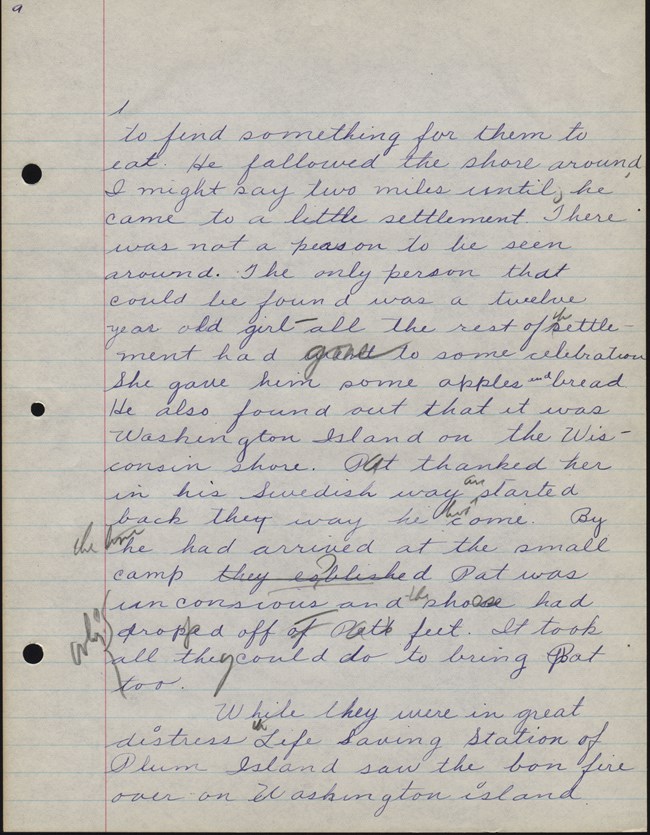 a
1
to find something for them to
eat. He fallowed the shore around,
I might say two miles until, he
came to a little settlement. There
was not a peason to be seen
around. The only person that
could be found was a twelve
year old girl-all the rest of the settle-
ment had gone to some celebration
She gave him some apples and bread
He also found out that it was
Washington Island on the Wis-
consin shore. Pat thanked her
in his Swedish way an started
back they way he had come. By
the time he had arrived at the small
camp they esblished Pat was
unconscious and the shoes had
droped off of Pat's feet. It took
all they could do to bring Pat
too.
While they were in great
distress th Life Saving Station of
Plum Island saw the bon fire
over on Washington island.